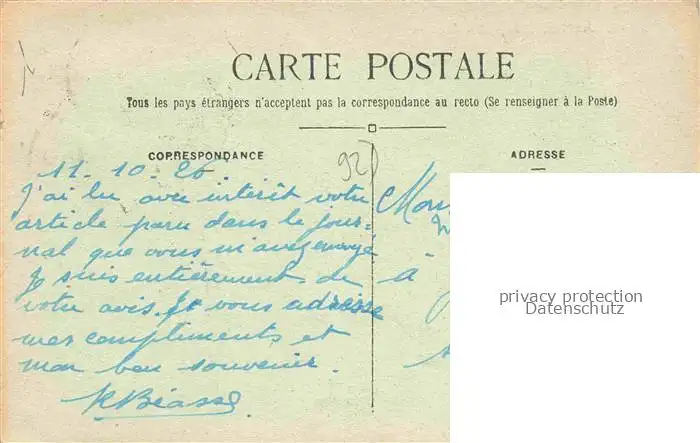 CARTE POSTALE
Tous les pays étrangers n'acceptent pas la correspondance au recto (Se renseigner à la Poste)
CORRESPONDANCE
ADRESSE
92
11-10-26
J'ai lu avec intérêt votre
article paru dans le jour-
nal que vous m'avez envoyé
Je suis entièrement de
votre avis. Je vous adresse
mes compliments et
mon bon souvenir.
à
privacy protection
Datenschutz